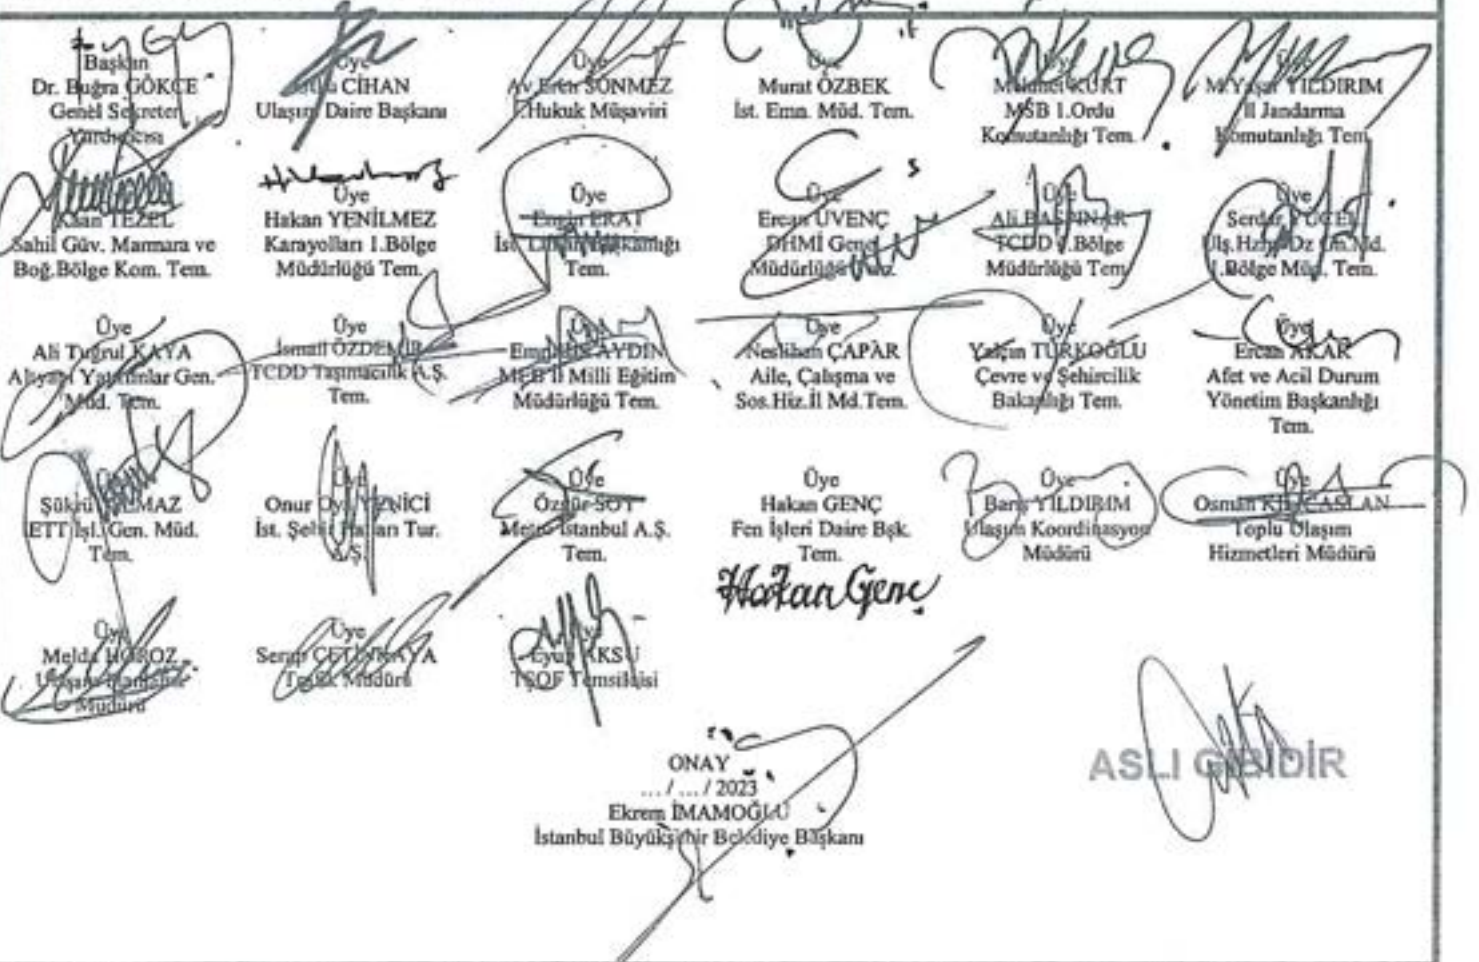 Başkan
Dr. Buğra GÖKCE
Genel Sekreter
Yardımcısı
Üye
CİHAN
Ulaşım Daire Başkanı
Üye
Av Eren SÖNMEZ
Hukuk Müşaviri
Üye
Murat ÖZBEK
İst. Emn. Müd. Tem.
Üye
Mehmet KURT
MSB 1.Ordu
Komutanlığı Tem.
Üye
M.Yaşar YILDIRIM
İl Jandarma
Komutanlığı Tem
TEZEL
Sahil Güv. Marmara ve
Boğ.Bölge Kom. Tem.
Üye
Hakan YENİLMEZ
Karayolları 1.Bölge
Müdürlüğü Tem.
Üye
Engin ERAT
İst. Liman Başkanlığı
Tem.
Üye
Ercan ÜVENÇ
DHMİ Genel
Müdürlüğü Tem.
Üye
Ali BAŞPINAR
TCDD 1.Bölge
Müdürlüğü Tem
Üye
Serdar YÜCEL
1.Bölge Müd. Tem.
Üye
Ali Tuğrul KAYA
Altyapı Yatırımlar Gen.
Müd. Tem.
Üye
İsmail ÖZDEMİR
TCDD Taşımacılık A.Ş.
Tem.
Üye
AYDIN
MEB İl Milli Eğitim
Müdürlüğü Tem.
Üye
Neslihan ÇAPAR
Aile, Çalışma ve
Sos.Hiz.İl Md.Tem.
Üye
Yalçın TÜRKOĞLU
Çevre ve Şehircilik
Bakanlığı Tem.
Üye
Ercan AKAR
Afet ve Acil Durum
Yönetim Başkanlığı
Tem.
Üye
Şükrü
İETT İşl. Gen. Müd.
Tem.
Üye
Onur
İst. Şehir Hatları Tur.
A.Ş.
Üye
Özgür SOY
Metro İstanbul A.Ş.
Tem.
Üye
Hakan GENÇ
Fen İşleri Daire Bşk.
Tem.
Hakan Genç
Üye
Barış YILDIRIM
Ulaşım Koordinasyon
Müdürü
Üye
Osman KILIÇASLAN
Toplu Ulaşım
Hizmetleri Müdürü
Üye
Melda HOROZ
Müdürü
Üye
Serap ÇETİNKAYA
Trafik Müdürü
Üye
Eyüp AKSU
TŞOF Temsilcisi
ONAY
... / ... / 2023
Ekrem İMAMOĞLU
İstanbul Büyükşehir Belediye Başkanı
ASLI GİBİDİR